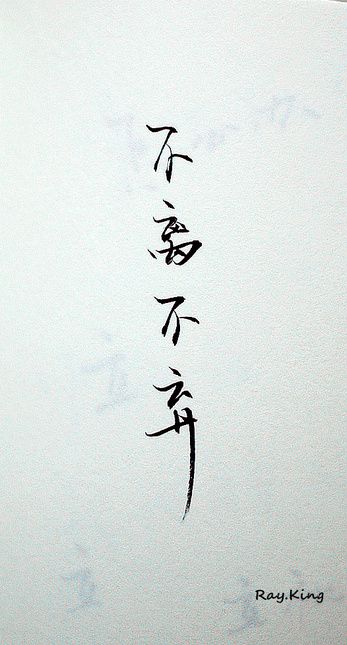 不离不弃
Ray.King